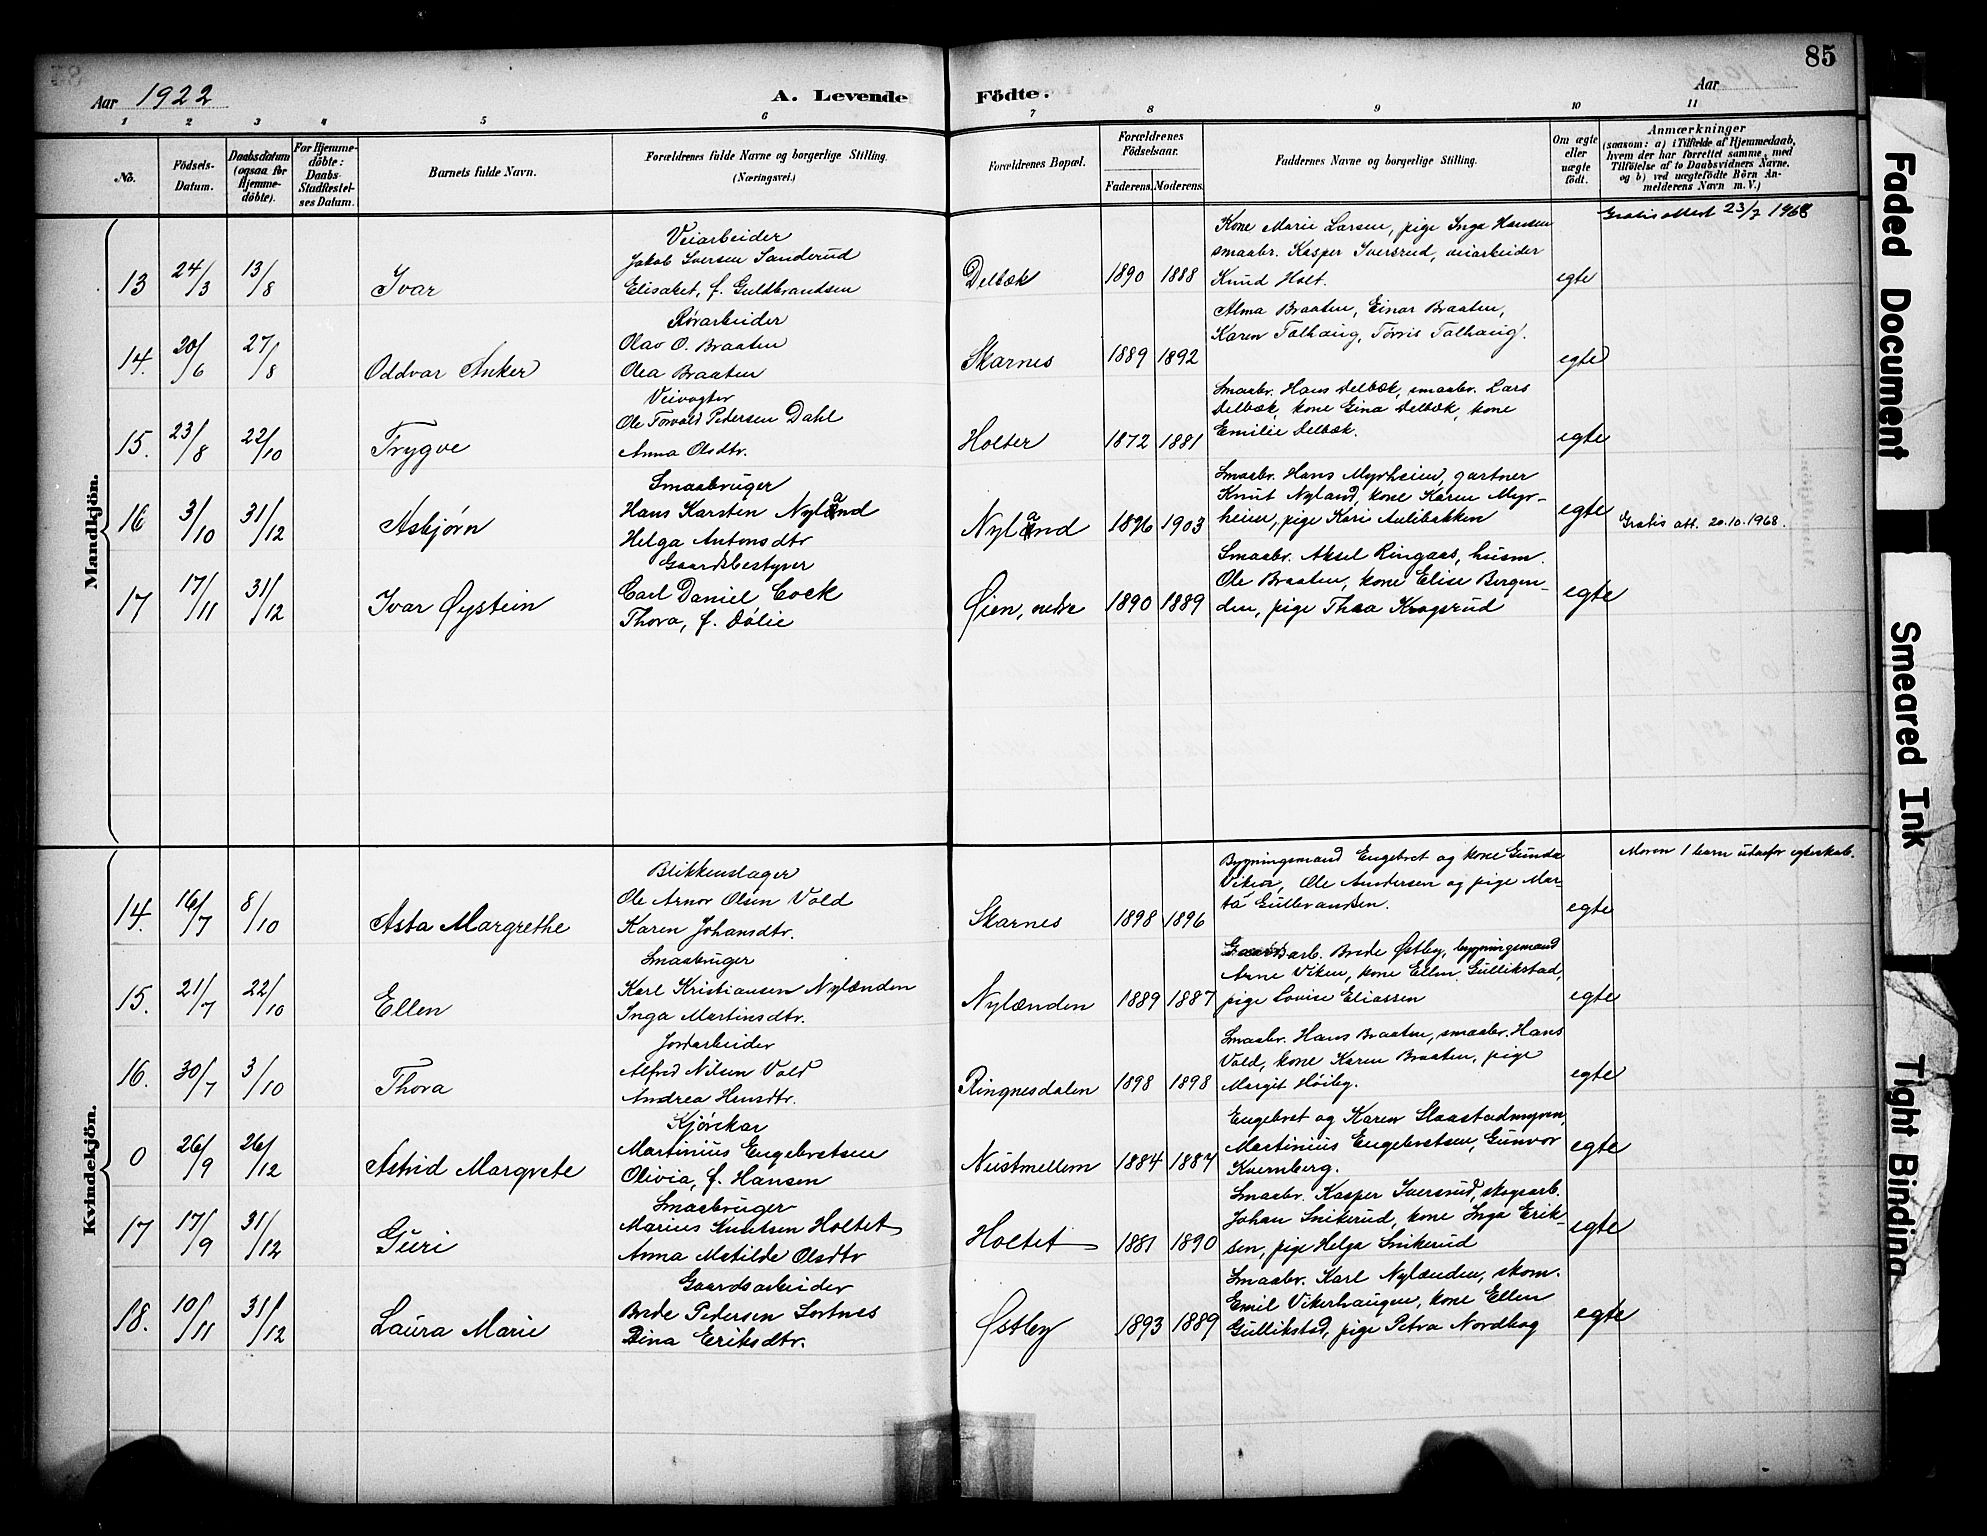 85
Aar 1922
A. Levende Födte.
Aar
1 2 3 4 5 6 7 8 9 10 11
No.
Födsels-
Datum.
Daabsdatum
(ogsaa for
Hjemme-
döbte).
For Hjemme-
döbte:
Daabs-
Stadfæstel-
ses Datum.
Barnets fulde Navn.
Forældrenes fulde Navne og borgerlige Stilling.
(Næringsvei.)
Forældrenes Bopæl.
Forældrenes
Födselsaar.
Faderens. Moderens.
Faddernes Navne og borgerlige Stilling.
Om ægte
eller
uægte
födt.
Anmærkninger
(saasom: a) i Tilfælde af Hjemmedaab,
hvem der har forrettet samme, med
Tilföielse af to Daabsvidners Navne,
og b) ved uægtefödte Börn An-
melderens Navn m. V.)
Mandkjön.
13 24/3 13/8 Ivar
Veiarbeider
Jakob Iversen Sanderud
Elisabet, f. Guldbrandsen
Delbæk 1890 1888
Kone Marie Larsen, pige Inga Hansen
smaabr. Kasper Iversrud, veiarbeider
Knud Holt.
egte
Gratis attest 23/7 1968
14. 20/6 27/8 Oddvar Anker
Rørarbeider
Olav O. Braaten
Olea Braaten
Skarnes 1889 1892
Alma Braaten, Einar Braaten,
Karen Tolhaug, Torris Tolhaug.
egte
15. 23/8 22/10 Trygve
Veivogter
Ole Torvald Pedersen Dahl
Anna Olsdtr.
Holter 1872 1881
Smaabr. Hans Delbæk, smaabr. Lars
Delbæk, kone Gina Delbæk, kone
Emilie Delbæk.
egte
16 3/10 31/12 Asbjørn
Smaabruger
Hans Karsten Nyland
Helga Antonsdtr
Nyland 1896 1903
Smaabr. Hans Myrheim, gartner
Knut Nyland, kone Karen Myr-
heim, pige Kari Aulibakken
egte
Gratis att. 20.10.1968.
17 17/11 31/12 Ivar Øystein
Gaardsbestyrer
Carl Daniel Cock
Thora, f. Dølie
Øien, nedre 1890 1889
Smaabr. Aksel Ringaas, husm.
Ole Braaten, kone Elise Bergen-
den, pige Thea Krogsrud
egte
Kvindekjön.
14. 16/7 8/10 Asta Margrethe
Blikkenslager
Ole Arnor Olsen Vold
Karen Johansdtr.
Skarnes 1898 1896
Bygningsmand Engebret og kone Gunda
Viken, Ole Andersen og pige Mar-
ta Gulbransen.
egte
Moren 1 barn utenfor egteskab.
15. 21/7 22/10 Ellen
Smaabruger
Karl Kristiansen Nylænden
Inga Martinsdtr.
Nylænden 1889 1887
Gaardsarb. Brede Østby, bygningsmand
Arne Viken, kone Ellen Gullikstad,
pige Lovise Eliassen
egte
16. 30/7 3/10 Thora
Jordarbeider
Alfred Nilsen Vold
Andrea Hensdtr.
Ringnesdalen 1898 1898
Smaabr. Hans Braaten, smaabr. Hans
Vold, kone Karen Braaten, pige
Margit Høiby.
egte
0 26/9 26/12 Astrid Margrete
Kjørekar
Martinius Engebretsen
Olivia, f. Hansen
Nustmellem 1884 1887
Engebret og Karen Slaastadmyren,
Martinius Engebretsen, Gunvor
Kvernberg.
egte
17 17/9 31/12 Guri
Smaabruger
Marius Knutsen Holtet
Anna Matilde Olsdtr
Holtet 1881 1890
Smaabr. Kasper Iversrud, skogsarb.
Johan Snikerud, kone Inga Erik-
sen, pige Helga Snikerud
egte
18. 10/11 31/12 Laura Marie
Gaardsarbeider
Brede Pedersen Sortnes
Dina Eriksdtr.
Østby 1893 1889
Smaabr. Karl Nylænden, skom.
Emil Vikerhaugen, kone Ellen
Gullikstad, pige Petra Nordhag
egte
Faded Document
Smeared Ink
Tight Binding